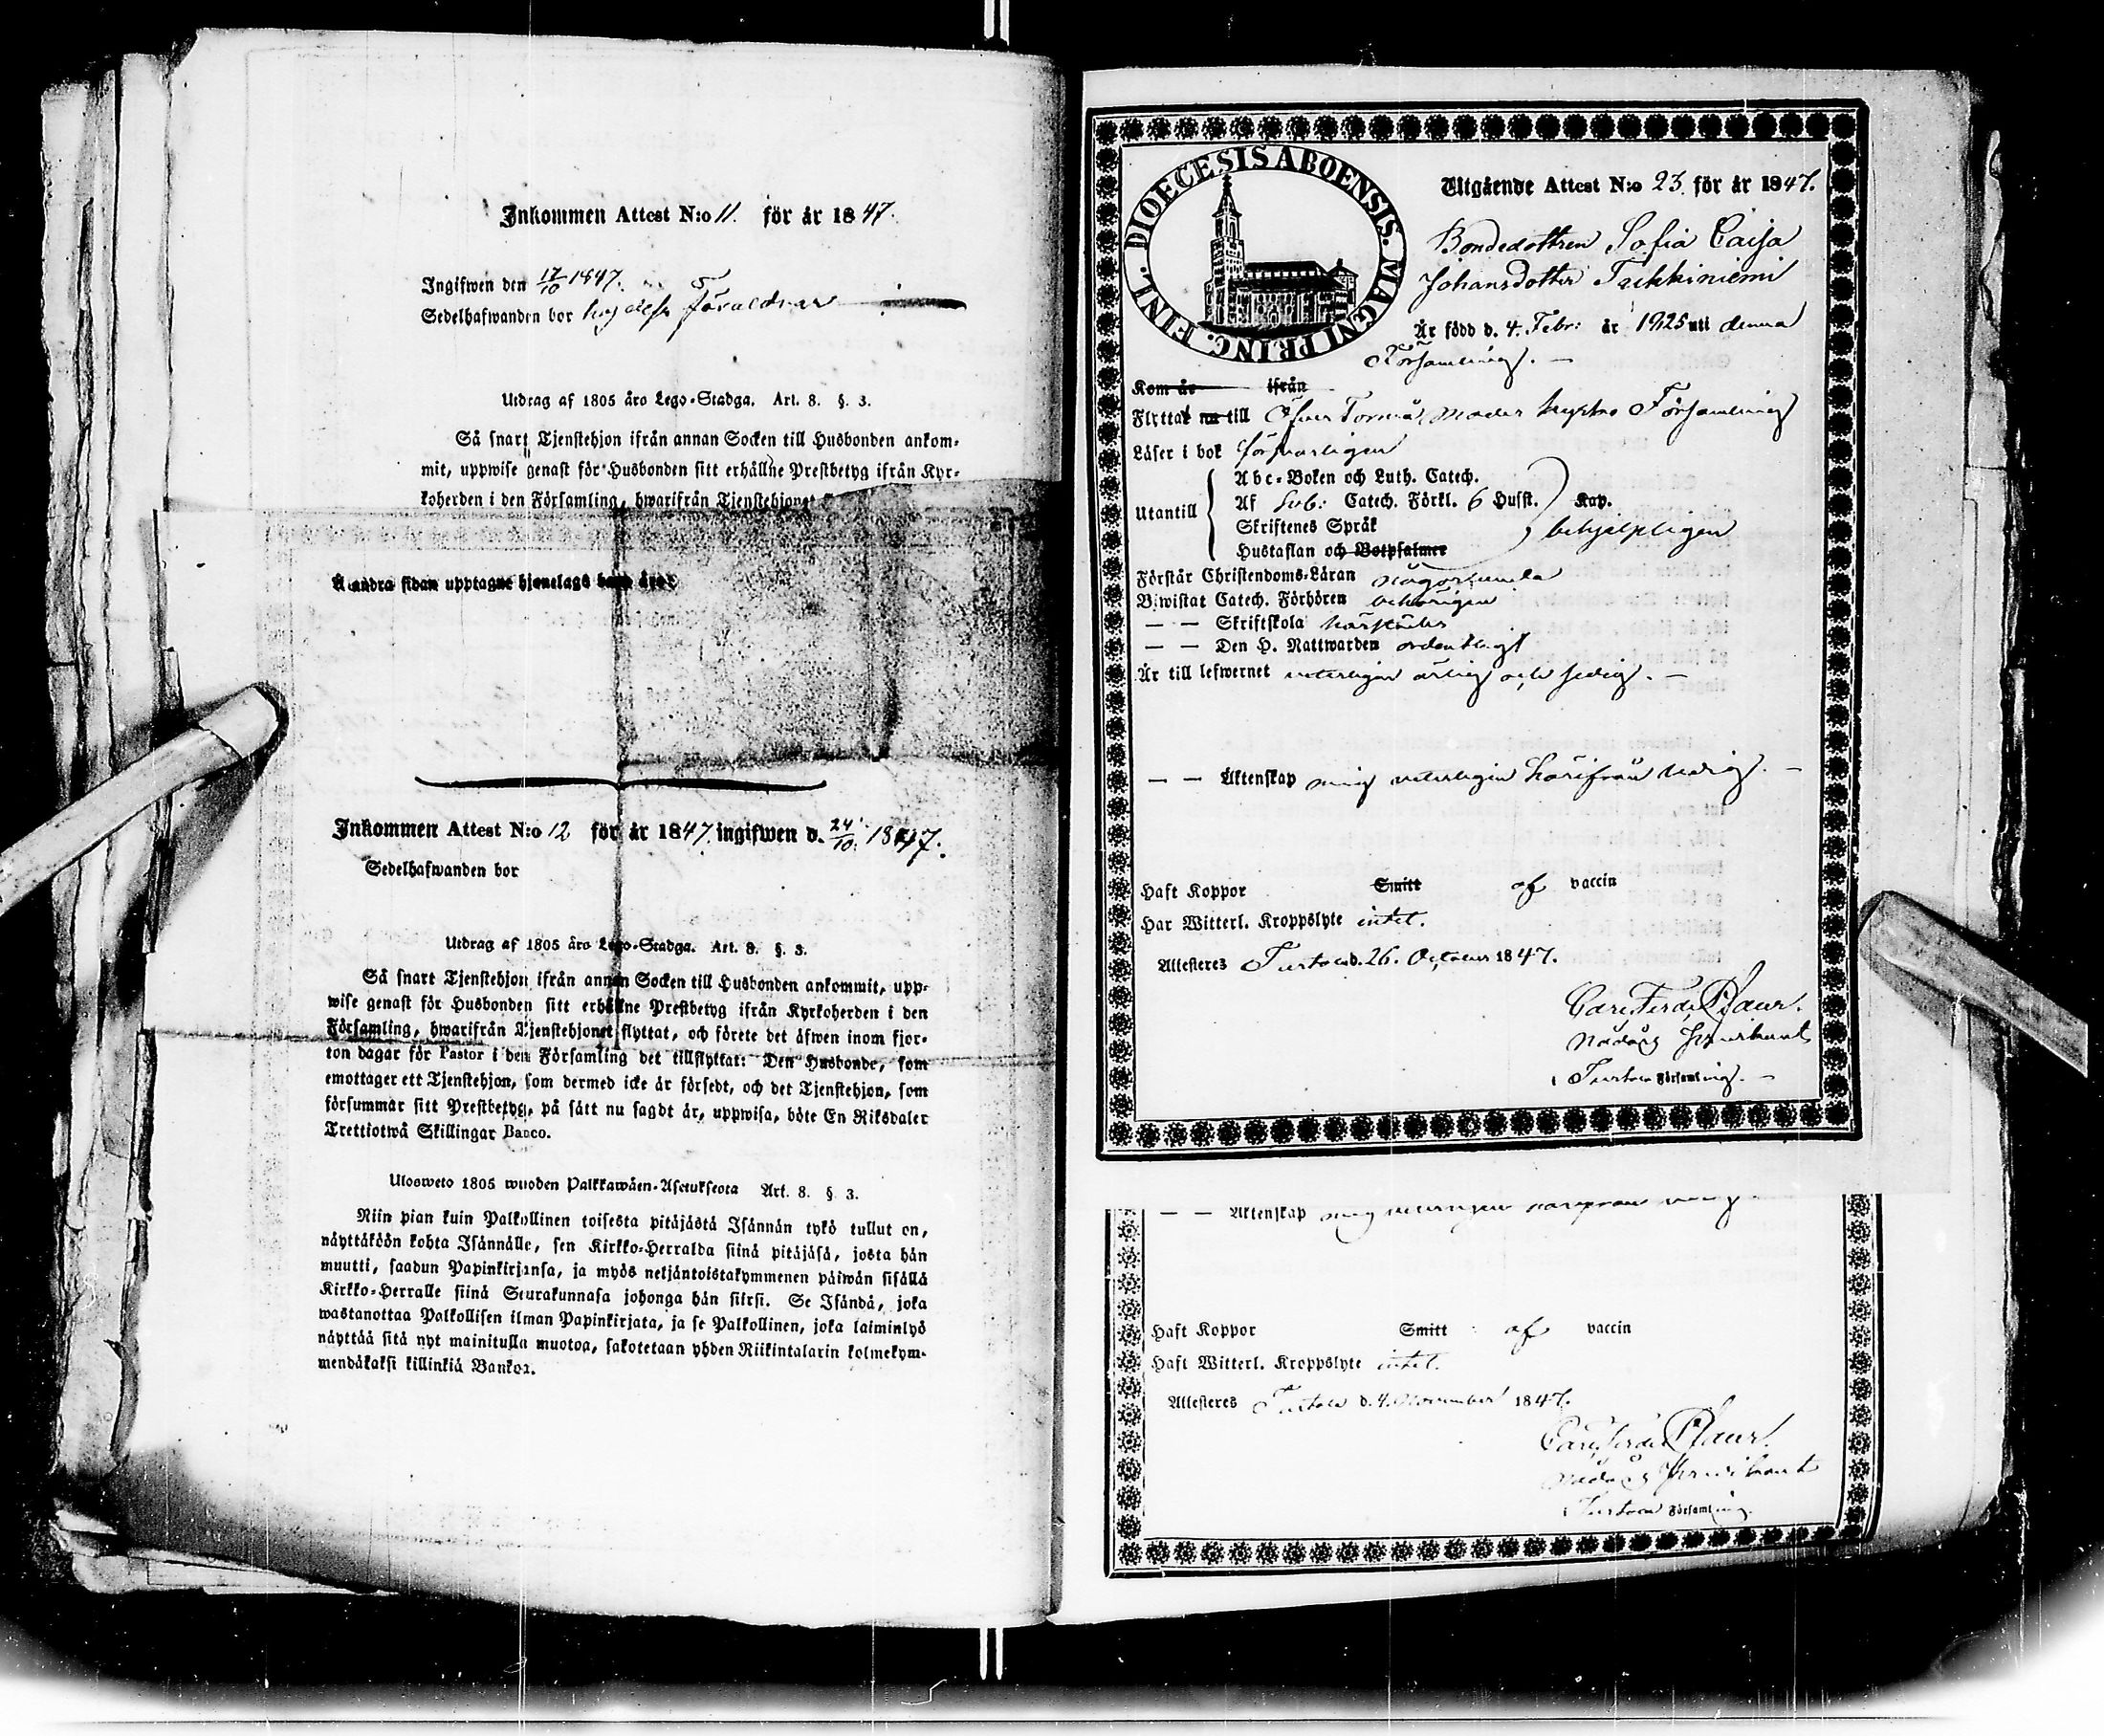 Inkommen Attest N:o 11. för år 1847.
Ingifwen den 17/10 1847.
Sedelhafwanden bor hos dess Föräldrar
Utdrag af 1805 års Lego-Stadga. Art. 8. §. 3.
Så snart Tjenstehjon ifrån annan Socken till Husbonden ankom-
mit, uppwise genast för Husbonden sitt erhållne Prestbetyg ifrån Kyr-
koherden i den Församling, hwarifrån Tjenstehjonet
Å andra sidan upptagne hjonelags barn äro:
Inkommen Attest N:o 12 för år 1847. ingifwen d. 24/10. 1847.
Sedelhafwanden bor
Utdrag af 1805 års Lego-Stadga. Art. 8. §. 3.
Så snart Tjenstehjon ifrån annan Socken till Husbonden ankommit, upp-
wise genast för Husbonden sitt erhållne Prestbetyg ifrån Kyrkoherden i den
Församling, hwarifrån Tjenstehjonet flyttat, och förete det äfwen inom fjor-
ton dagar för Pastor i den Församling det tillflyttat: Den Husbonde, som
emottager ett Tjenstehjon, som dermed icke är försedt, och det Tjenstehjon, som
försummar sitt Prestbetyg, på sätt nu sagdt är, uppwisa, böte En Riksdaler
Trettiotwå Skillingar Banco.
Ulosweto 1805 wuoden Palkkawäen-Asetuksesta Art. 8. § 3.
Niin pian kuin Palkollinen toisesta pitäjästä Isännän tykö tullut on,
näyttäköön kohta Isännälle, sen Kirkko-Herralda siinä pitäjäsä, josta hän
muutti, saadun Papinkirjansa, ja myös neljäntoistakymmenen päiwän sisällä
Kirkko-Herralle siinä Seurakunnasa johonga hän siirsi. Se Isändä, joka
wastanottaa Palkollisen ilman Papinkirjata, ja se Palkollinen, joka laiminlyö
näyttää sitä nyt mainitulla muotoa, sakotetaan yhden Riikintalarin kolmekym-
mendäkaksi killinkiä Bankoa.
DIOECESIS ABOENSIS. MAGNI PRINC. FINL.
Utgående Attest N:o 23. för år 1847.
Bondedottren Sofia Caisa
Johansdotter Tukkiniemi
Är född d. 4. Febr: år 1825 uti denna
Församling. —
Kom år ifrån
Flyttat nu till Öfver Torneå moder kyrko Församling
Läser i bok försvarligen
Utantill
Abc-Boken och Luth. Catech.
Af Svb: Catech. Förkl. 6 Husst. Kap.
Skriftenes Språk behjelpligen
Hustaflan och Botpsalmer
Förstår Christendoms-Läran någorlunda
Biwistat Catech. Förhören behörigen
— — Skriftskola härstädes
— — Den H. Nattwarden ordentligt
Är till lefwernet veterligen ärlig och sedig. —
— — Äktenskap mig veterligen härifrån ledig. —
Haft Koppor Smitt af vaccin
Har Witterl. Kroppslyte intet.
Attesteres Turtola d. 26. October 1847.
Carl Ferd: Pfaler.
Nådårs Predikant
i Turtola Församling. —
— — Äktenskap mig veterligen härifrån ledig
Haft Koppor Smitt af vaccin
Haft Witterl. Kroppslyte intet.
Attesteres Turtola d. 4. November 1847.
Carl Ferd: Pfaler.
Nådårs Predikant
i Turtola Församling.